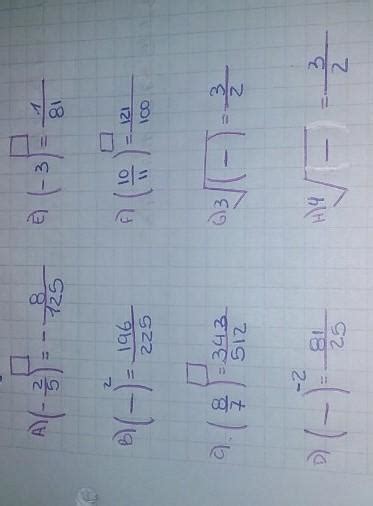 A) (-2/5)^□ = -8/125
B) (—)^2 = 196/225
C). (8/7)^□ = 343/512
D) (—)^-2 = 81/25
E) (-3)^□ = 1/81
F) (10/11)^□ = 121/100
G) 3√(—) = 3/2
H) 4√(—) = 3/2